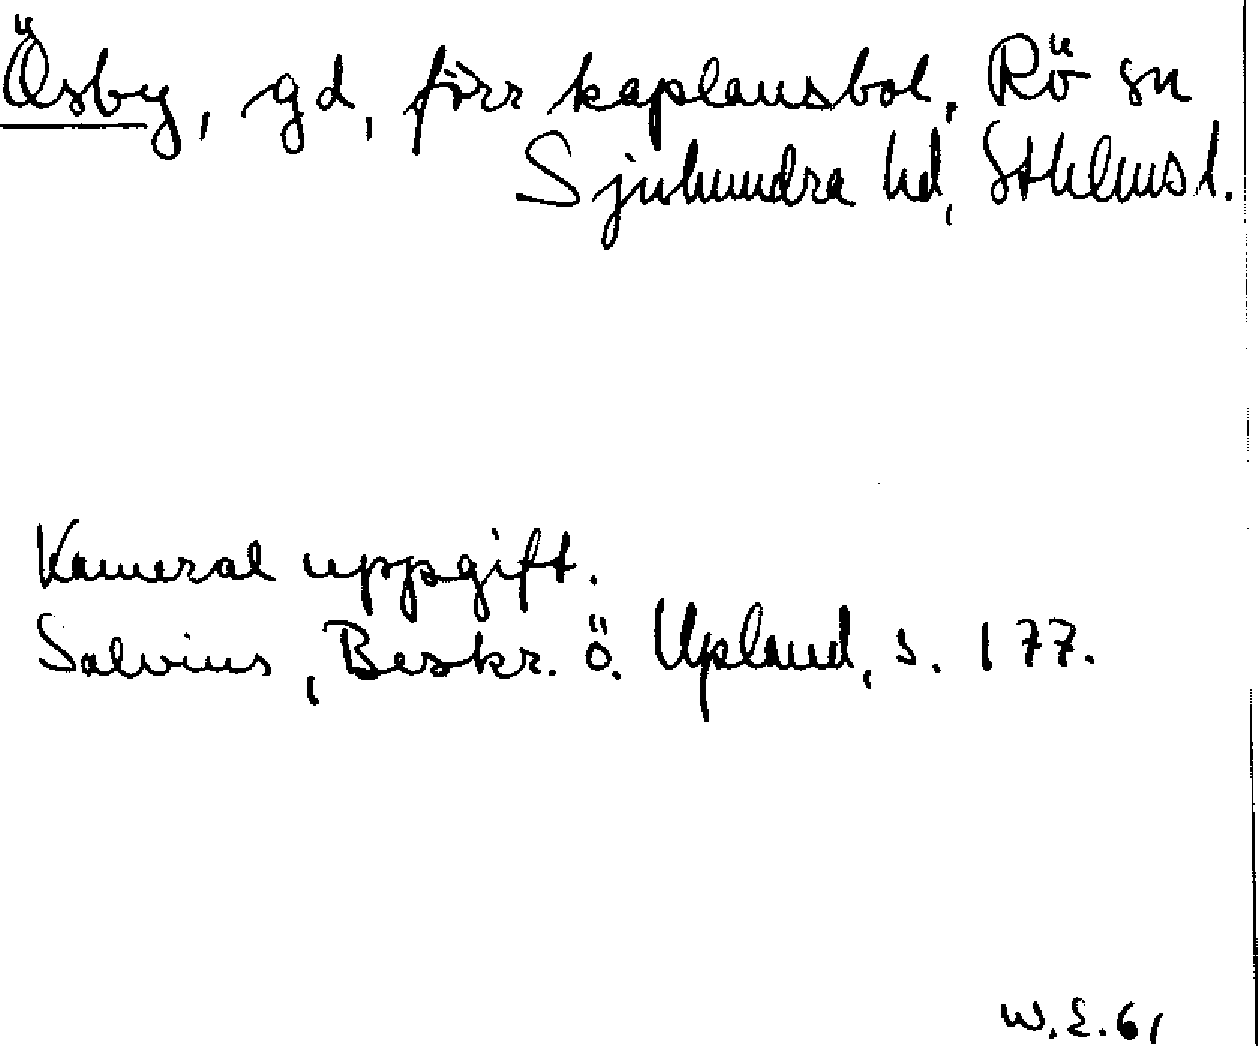 Ösby, gd, förr kaplansbol, Rö sn
Sjuhundra hd, Sthlms l.
Kameral uppgift.
Salvius, Beskr. ö. Upland, s. 177.
W.E. 61